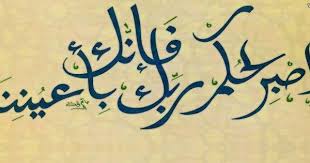 اصبر لحكم ربك فإنك بأعيننا